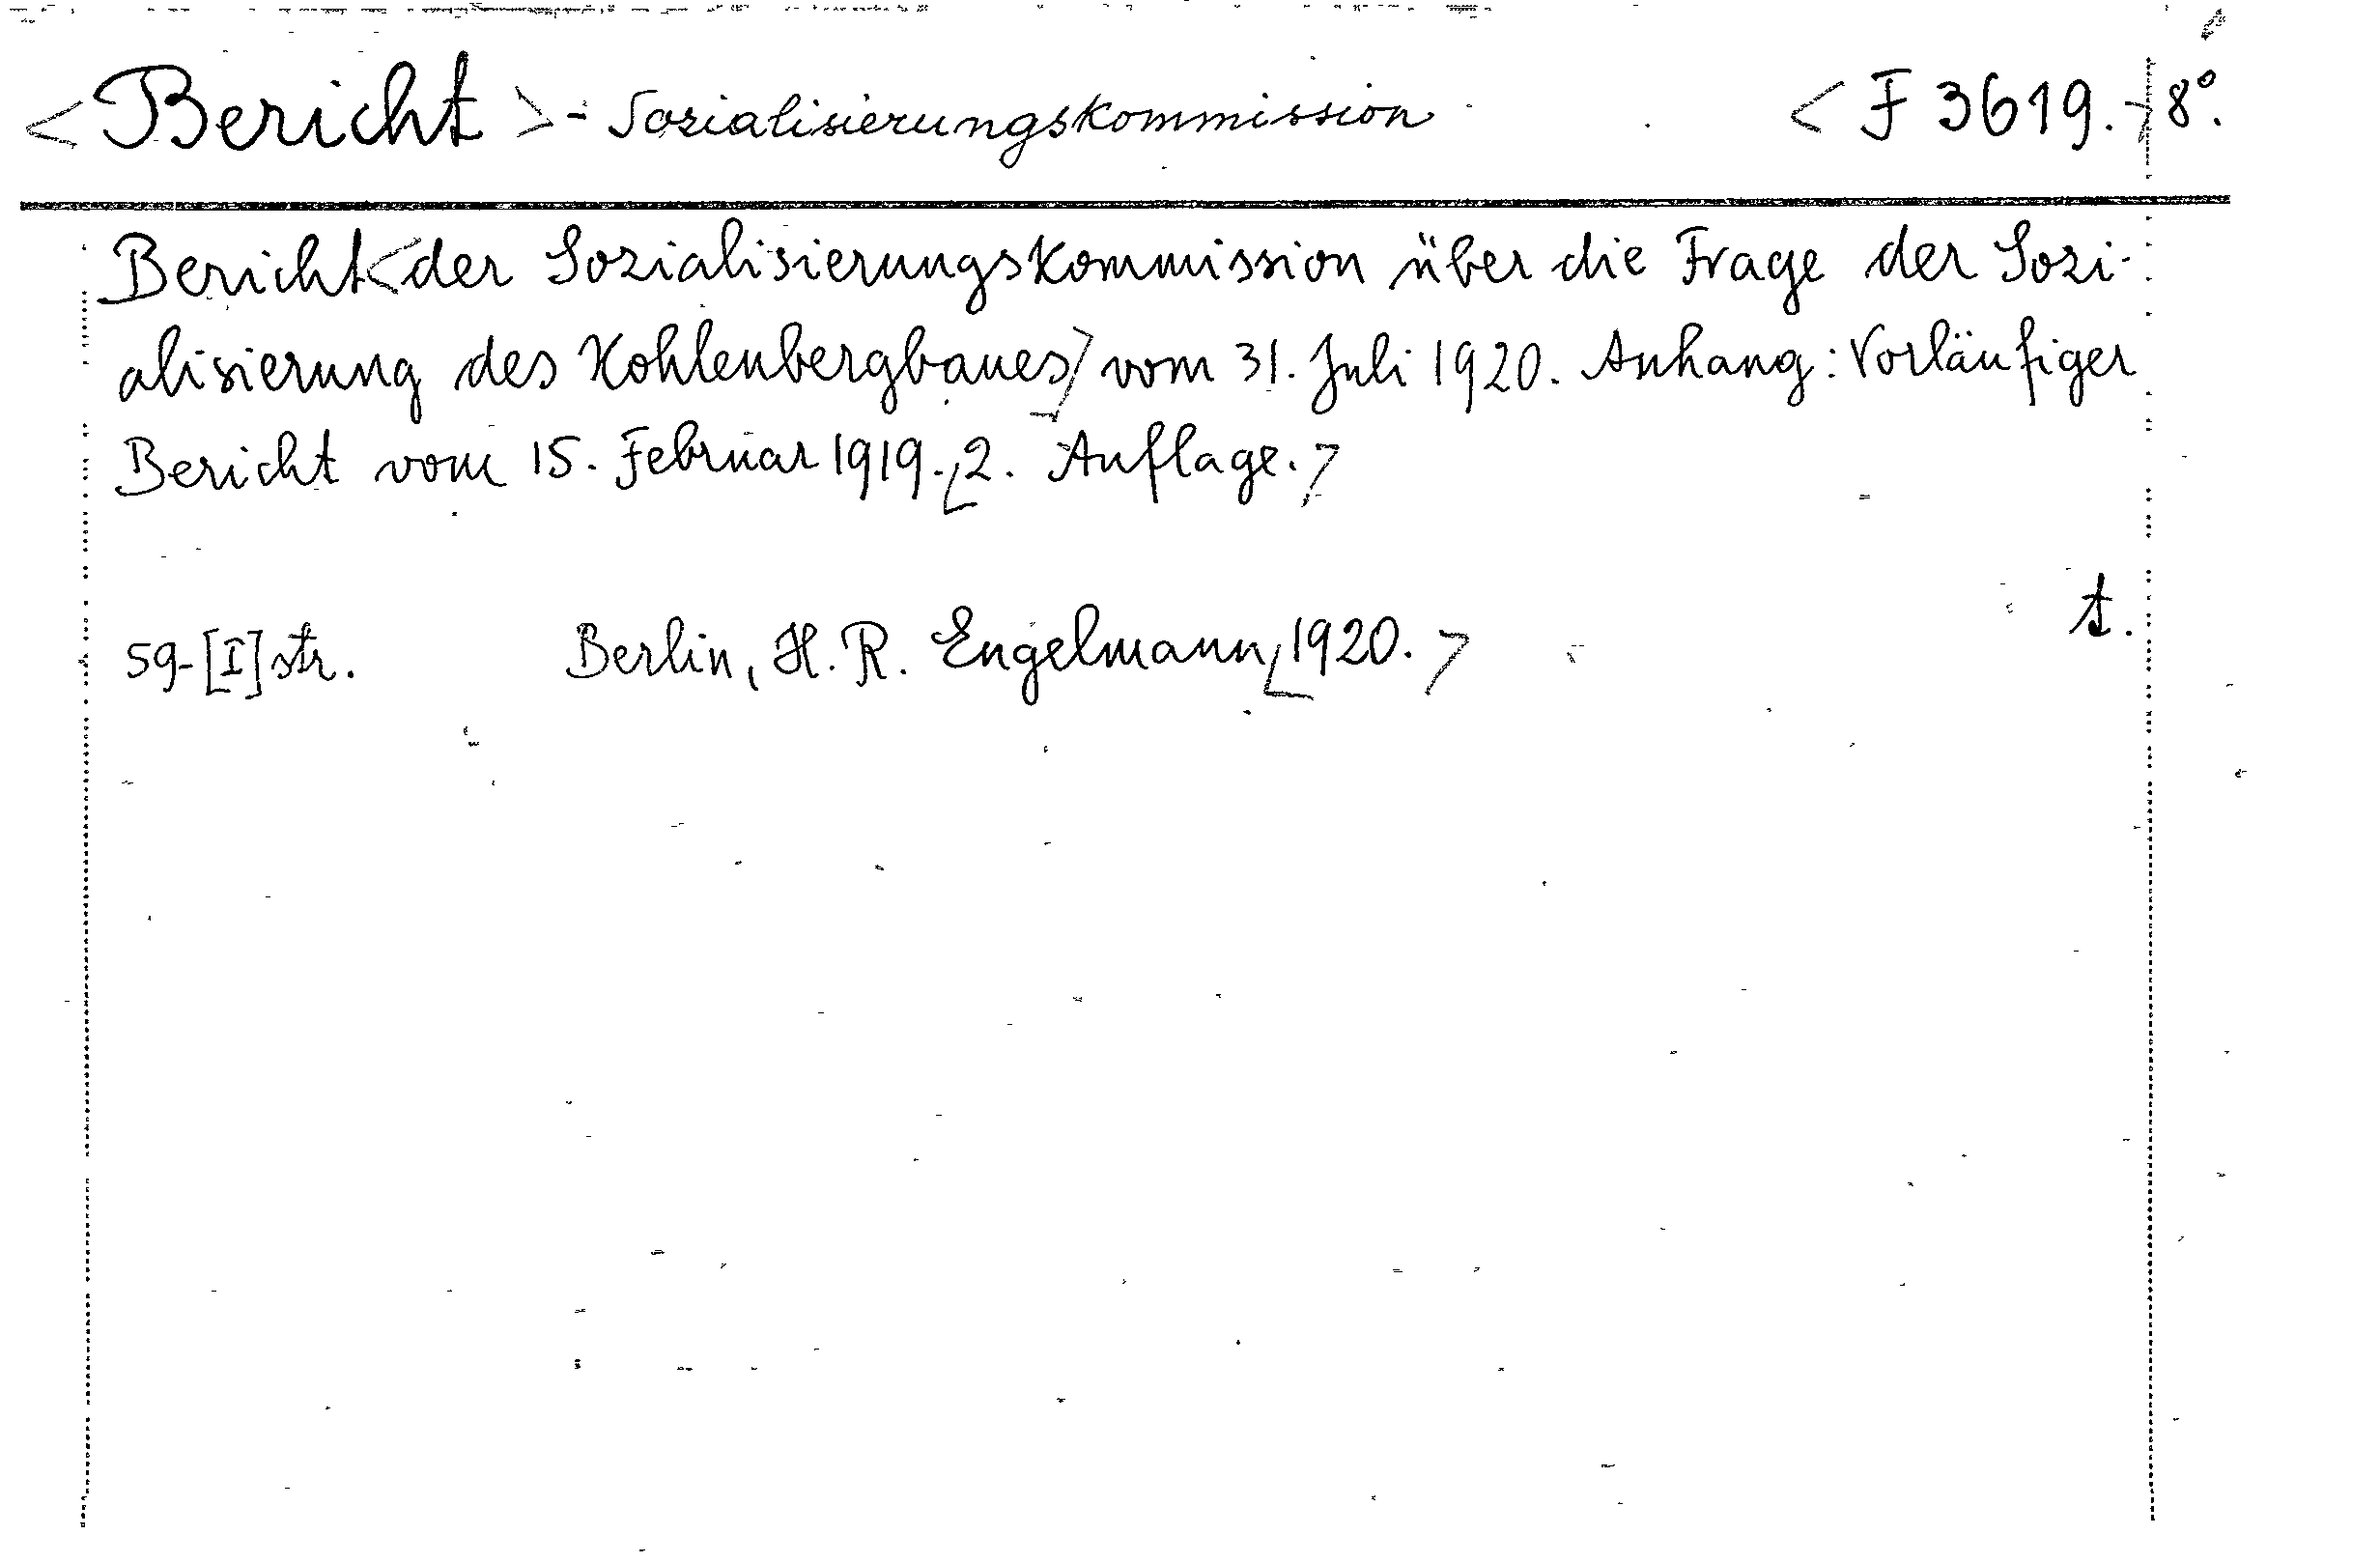 <Bericht> - Sozialisierungskommission <F 3619.> 8°.
Bericht <der Sozialisierungskommission über die Frage der Sozi-
alisierung des Kohlenbergbaues> vom 31. Juli 1920. Anhang: Vorläufiger
Bericht vom 15. Februar 1919. <2. Auflage.>
t.
59-[I] str. Berlin, H. R. Engelmann, <1920.>